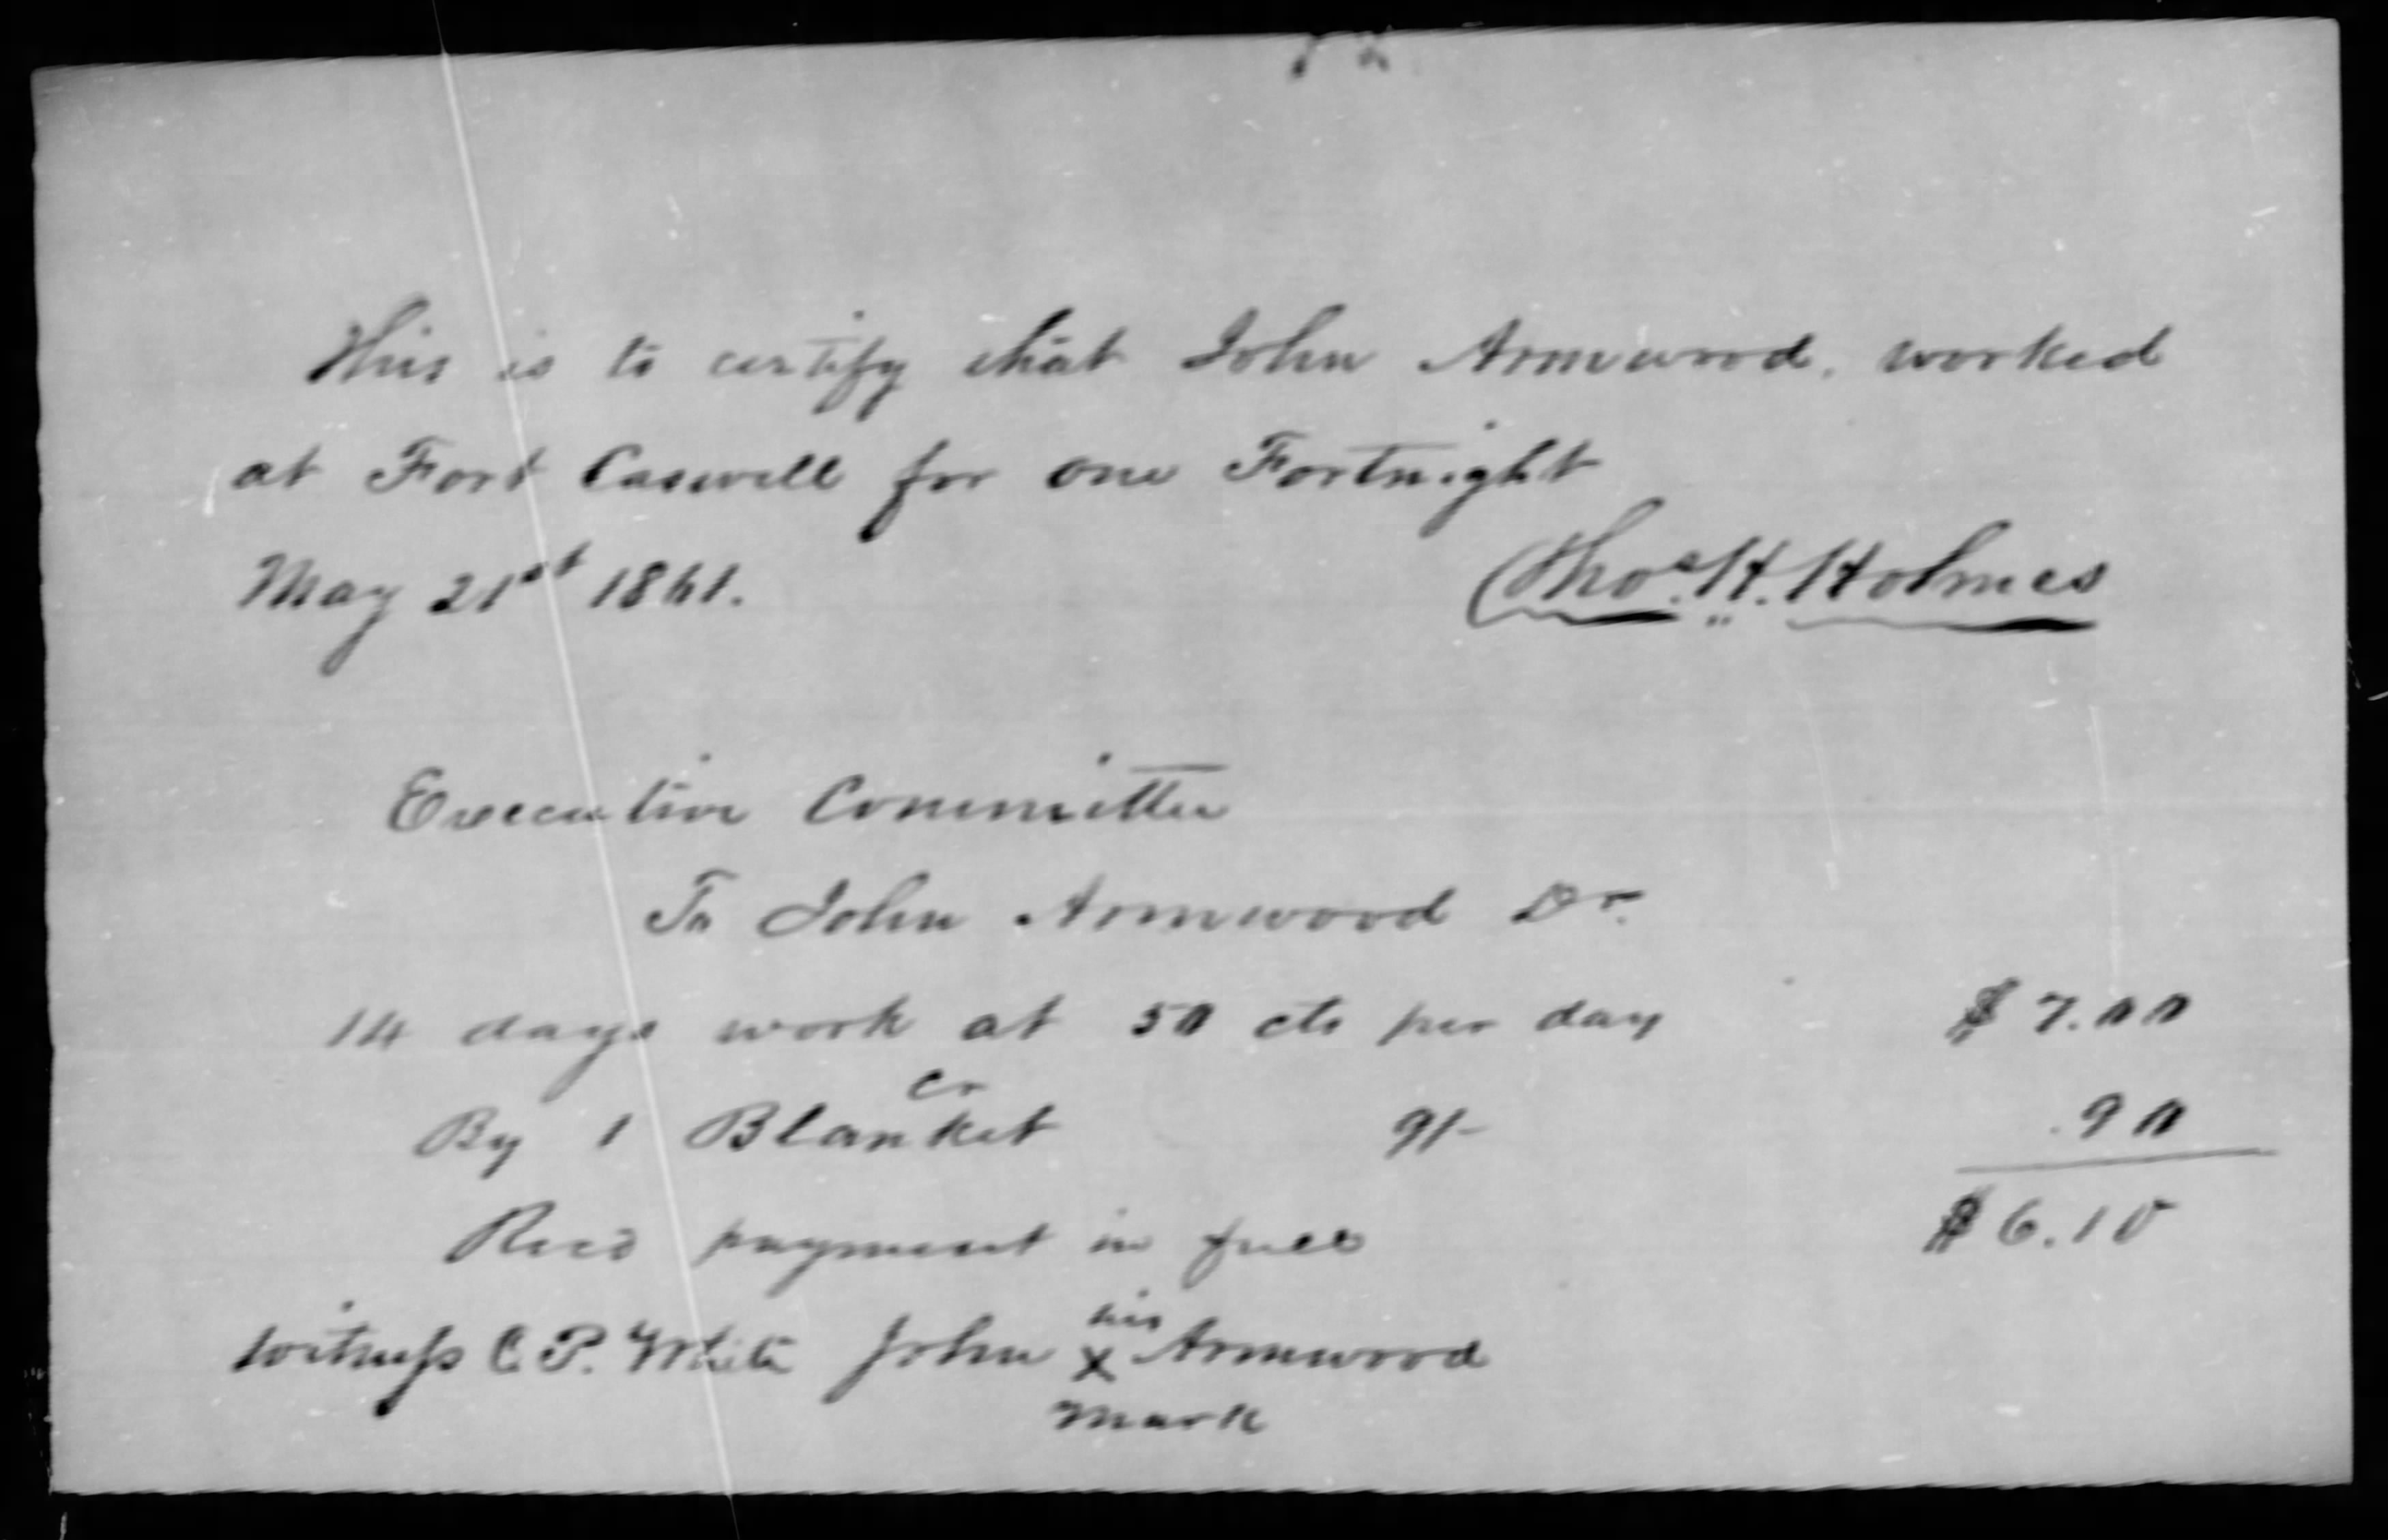 This is to certify that John Armwood, worked
at Fort Caswell for one Fortnight
May 21st 1861.
Thos. H. Holmes
Executive Committee
To John Armwood Dr.
14 days work at 50 cts per day $7.00
Cr
By 1 Blanket 9/- .90
$6.10
Recd payment in full
his
Witness C. P. White John X Armwood
mark